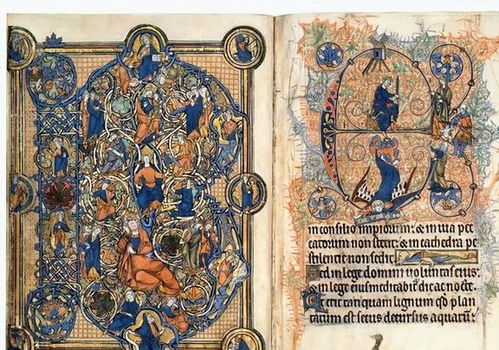 in consilio impiorum: & in uia pec
catorum non stetit: & in cathedra pe
stilencie non sedit
Sed in lege domini uoluntas eius:
& in lege eius meditabit' die ac nocte
Et erit tanquam lignum qđ plan
tatum est secus decursus aquarum: